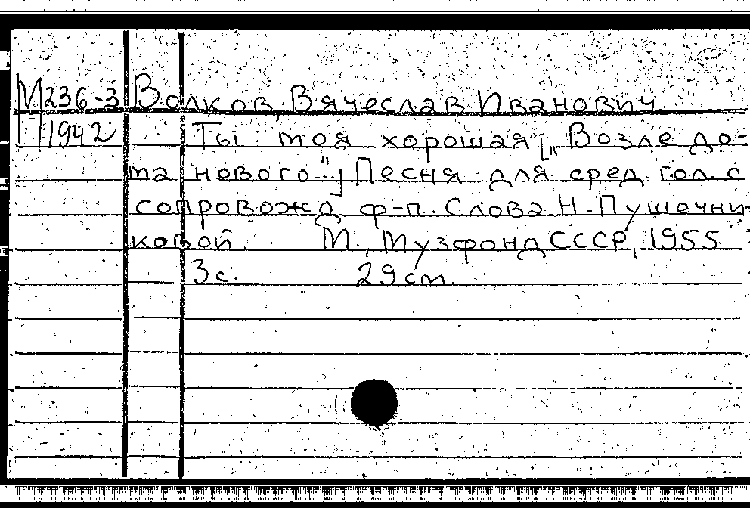 М236-3 Волков, Вячеслав Иванович
1942 Ты моя хорошая [„Возле до-
та нового"] Песня для сред. гол. с
сопровожд ф-п. Слова Н. Пушечни-
ковой М., Музфонд СССР, 1955
3с. 29 см.